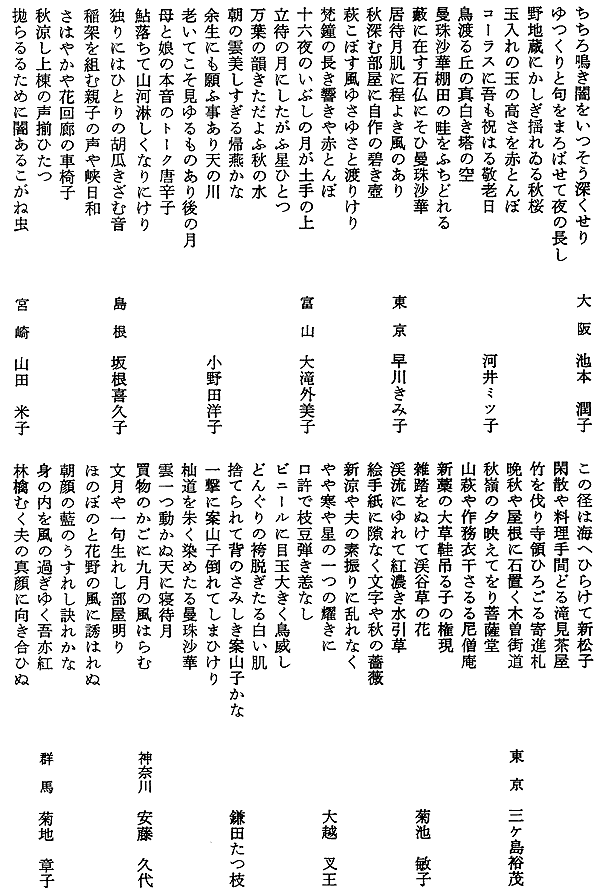 ちちろ鳴き闇をいつそう深くせり
ゆつくりと句をまろばせて夜の長し
野地蔵にかしぎ揺れゐる秋桜
大阪 池本潤子
玉入れの玉の高さを赤とんぼ
コーラスに吾も祝はる敬老日
鳥渡る丘の真白き塔の空
曼珠沙華棚田の畦をふちどれる
河井ミツ子
藪に在す石仏にそひ曼珠沙華
居待月肌に程よき風のあり
秋深む部屋に自作の碧き壺
萩こぼす風ゆさゆさと渡りけり
東京 早川きみ子
梵鐘の長き響きや赤とんぼ
十六夜のいぶしの月が土手の上
立待の月にしたがふ星ひとつ
万葉の韻きただよふ秋の水
富山 大滝外美子
朝の雲美しすぎる帰燕かな
余生にも願ふ事あり天の川
老いてこそ見ゆるものあり後の月
母と娘の本音のトーク唐辛子
小野田洋子
鮎落ちて山河淋しくなりにけり
独りにはひとりの胡瓜きざむ音
稲架を組む親子の声や峡日和
さはやかや花回廊の車椅子
島根 坂根喜久子
秋涼し上棟の声揃ひたつ
拋らるるために闇あるこがね虫
宮崎 山田米子
この径は海へひらけて新松子
閑散や料理手間どる滝見茶屋
竹を伐り寺領ひろごる寄進札
晩秋や屋根に石置く木曽街道
東京 三ケ島裕茂
秋嶺の夕映えてをり菩薩堂
山萩や作務衣干さるる尼僧庵
新藁の大草鞋吊る子の権現
雑踏をぬけて渓谷草の花
菊池敏子
渓流にゆれて紅濃き水引草
絵手紙に隙なく文字や秋の薔薇
新涼や夫の素振りに乱れなく
やや寒や星の一つの耀きに
大越叉王
口許で枝豆弾き恙なし
ビニールに目玉大きく鳥威し
どんぐりの袴脱ぎたる白い肌
捨てられて背のさみしき案山子かな
鎌田たつ枝
一撃に案山子倒れてしまひけり
杣道を朱く染めたる曼珠沙華
雲一つ動かぬ天に寝待月
買物のかごに九月の風はらむ
神奈川 安藤久代
文月や一句生れし部屋明り
ほのぼのと花野の風に誘はれぬ
朝顔の藍のうすれし訣れかな
身の内を風の過ぎゆく吾亦紅
群馬 菊地章子
林檎むく夫の真顔に向き合ひぬ